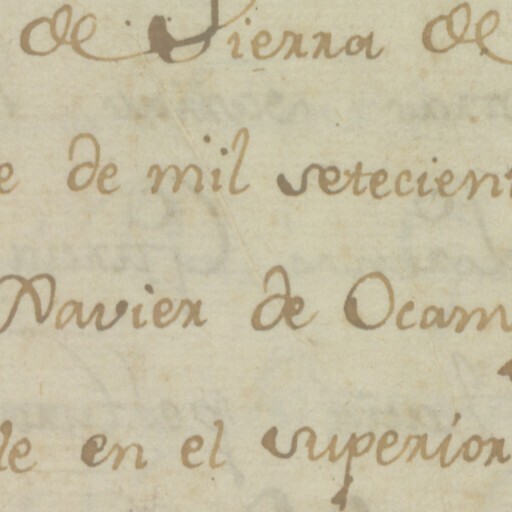 de Tierra de
e de mil setecient
Xavier de Ocam
le en el superior